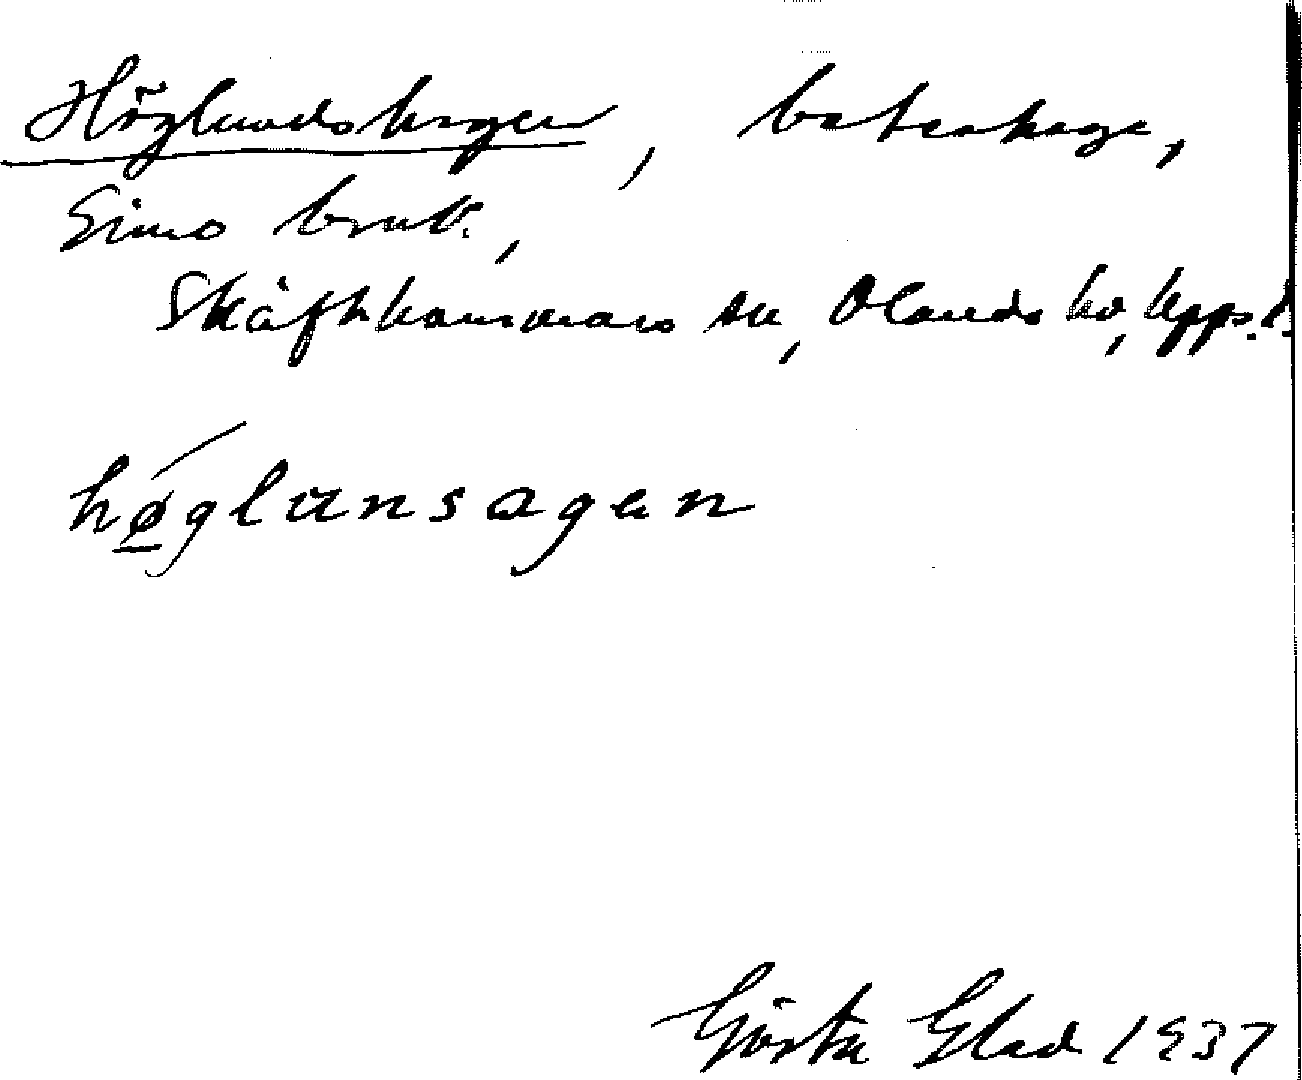 Höglundshagen, beteshage,
Gimo bruk,
Skäfthammars sn, Olands hd, Upps. l.
hǿ̲glünsagen
Gösta Glad 1937